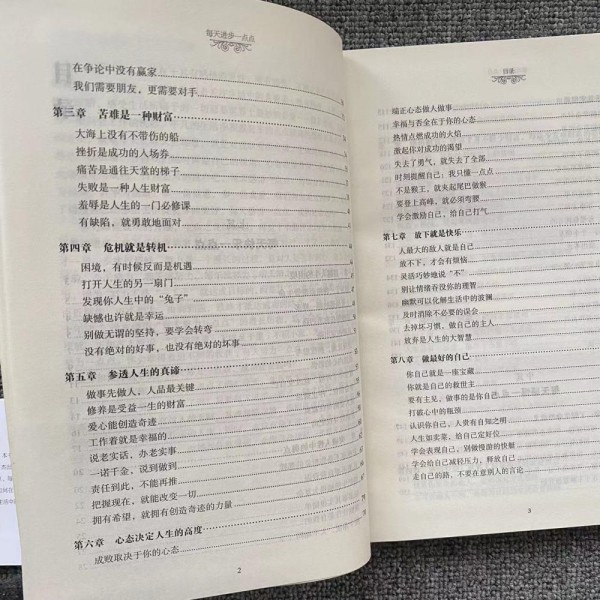 每天进步一点点
在争论中没有赢家
我们需要朋友，更需要对手
第三章 苦难是一种财富
大海上没有不带伤的船
挫折是成功的入场券
痛苦是通往天堂的梯子
失败是一种人生财富
羞辱是人生的一门必修课
有缺陷，就勇敢地面对
第四章 危机就是转机
困境，有时候反而是机遇
打开人生的另一扇门
发现你人生中的“兔子”
缺憾也许就是幸运
别做无谓的坚持，要学会转弯
没有绝对的好事，也没有绝对的坏事
第五章 参透人生的真谛
做事先做人，人品最关键
修养是受益一生的财富
爱心能创造奇迹
工作着就是幸福的
说老实话，办老实事
一诺千金，说到做到
责任到此，不能再推
把握现在，就能改变一切
拥有希望，就拥有创造奇迹的力量
第六章 心态决定人生的高度
成败取决于你的心态
2
目录
端正心态做人做事
幸福与否全在于你的心态
热情点燃成功的火焰
激起你对成功的渴望
失去了勇气，就失去了全部
时刻提醒自己：我只懂一点点
不是猴王，就夹起尾巴做猴
要登上高峰，就必须弯腰
学会激励自己，给自己打气
第七章 放下就是快乐
人最大的敌人就是自己
放不下，才会有烦恼
灵活巧妙地说“不”
别让情绪吞没你的理智
幽默可以化解生活中的波澜
及时消除不必要的误会
去掉坏习惯，做自己的主人
放弃是人生的大智慧
第八章 做最好的自己
你自己就是一座宝藏
你就是自己的救世主
要有主见，做事的是你自己
打破心中的瓶颈
认识你自己，人贵有自知之明
人生如卖菜，给自己定好位
学会表现自己，别做慢游的快艇
学会给自己减轻压力，释放自己
走自己的路，不要在意别人的言论
3